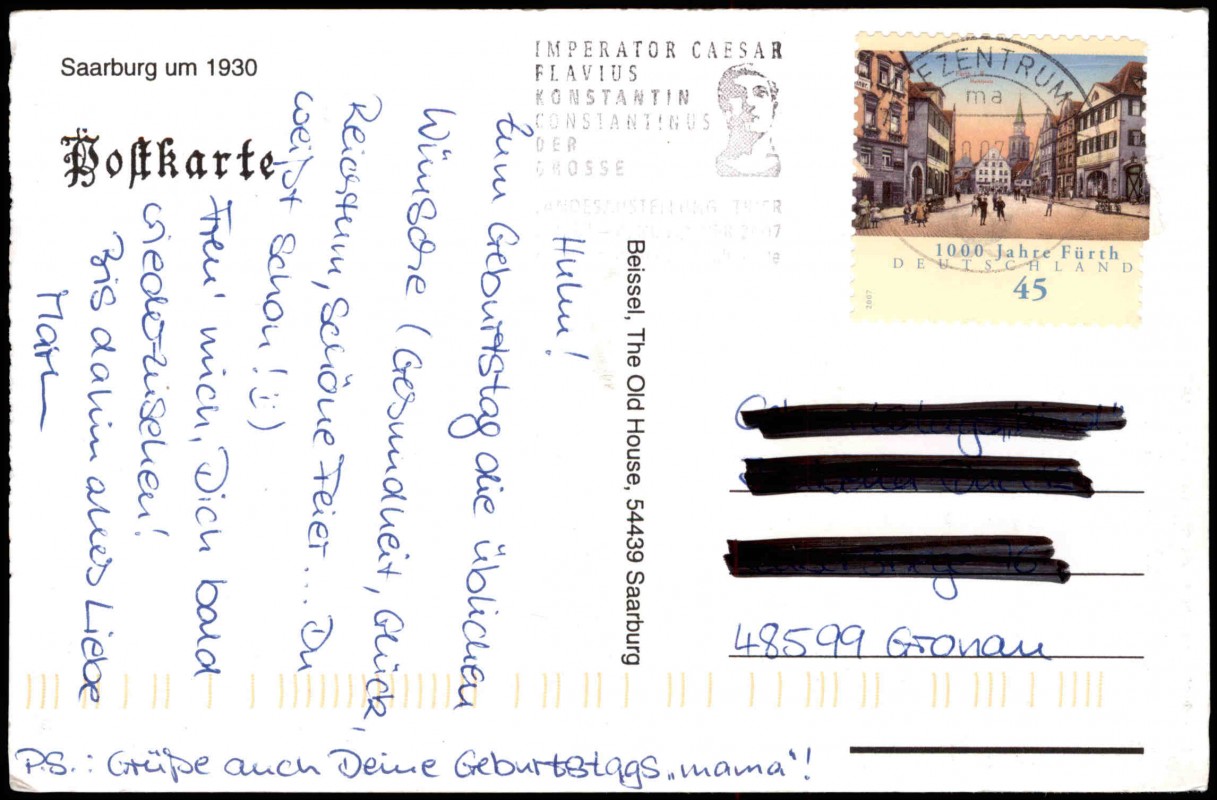 Saarburg um 1930
Postkarte
IMPERATOR CAESAR
FLAVIUS
KONSTANTIN
CONSTANTINUS
DER
GROSSE
LANDESAUSSTELLUNG TRIER
EZENTRUM
ma
1000 Jahre Fürth
DEUTSCHLAND
45
2007
Huhu!
Zum Geburtstag die üblichen
Wünsche (Gesundheit, Glück,
Reichtum, schöne Feier... Du
weißt schon! :))
Freu' mich, Dich bald
wiederzusehen!
Bis dahin alles Liebe
P.S.: Grüße auch Deine Geburtstags„mama"!
Beissel, The Old House, 54439 Saarburg
48599 Gronau